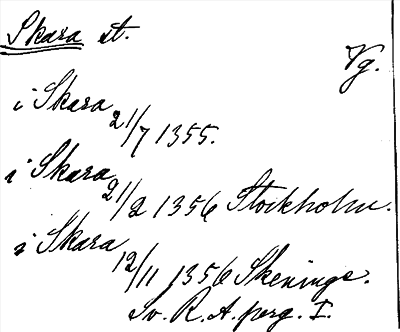 Skara st.
Vg.
i Skara
21/7 1355.
i Skara
21/2 1356 Stockholm.
i Skara
12/11 1356 Skeninge.
Sv. R. A. perg. I.